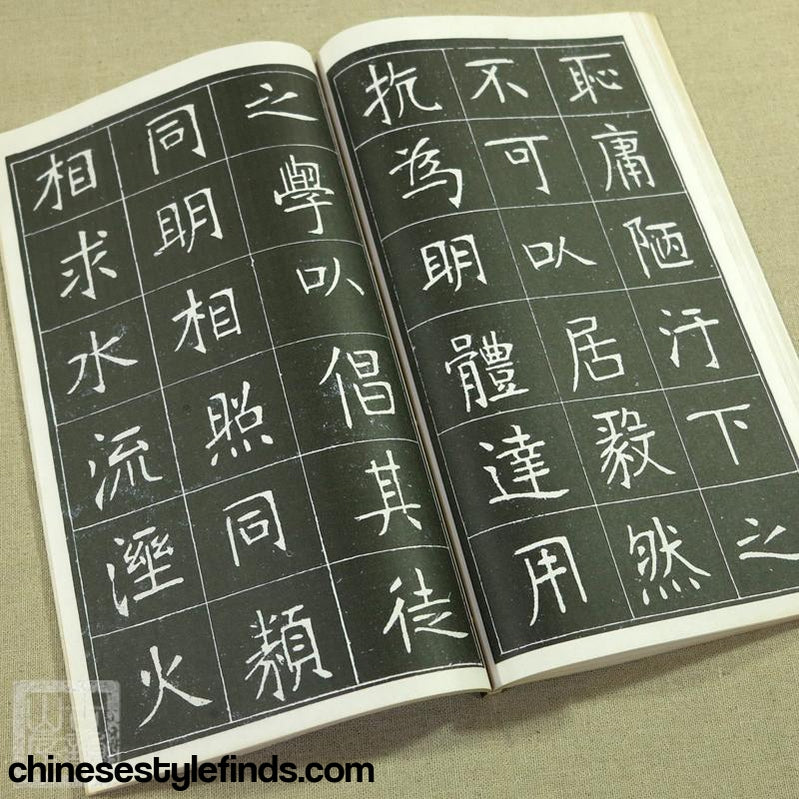 恥庸陋汙下之
不可㕥居毅然
抗為明體達用
之學㕥倡其徒
同明相照同類
相求水流溼火
chinesestylefinds.com